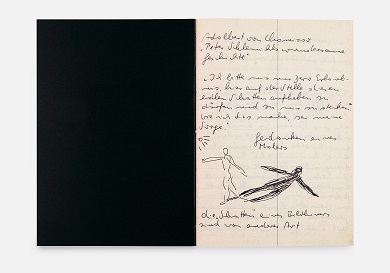 Adelbert von Chamisso
"Peter Schlemihls wundersame
Geschichte"
"Ich bitte nur um Ihre Erlaub-
nis, hier auf der Stelle diesen
edlen Schatten aufheben zu
dürfen und zu mir zu stecken;
wie ich das mache, sei meine
Sorge."
Gedanken eines
Malers
die Schatten eines Bildhauers
sind von anderer Art